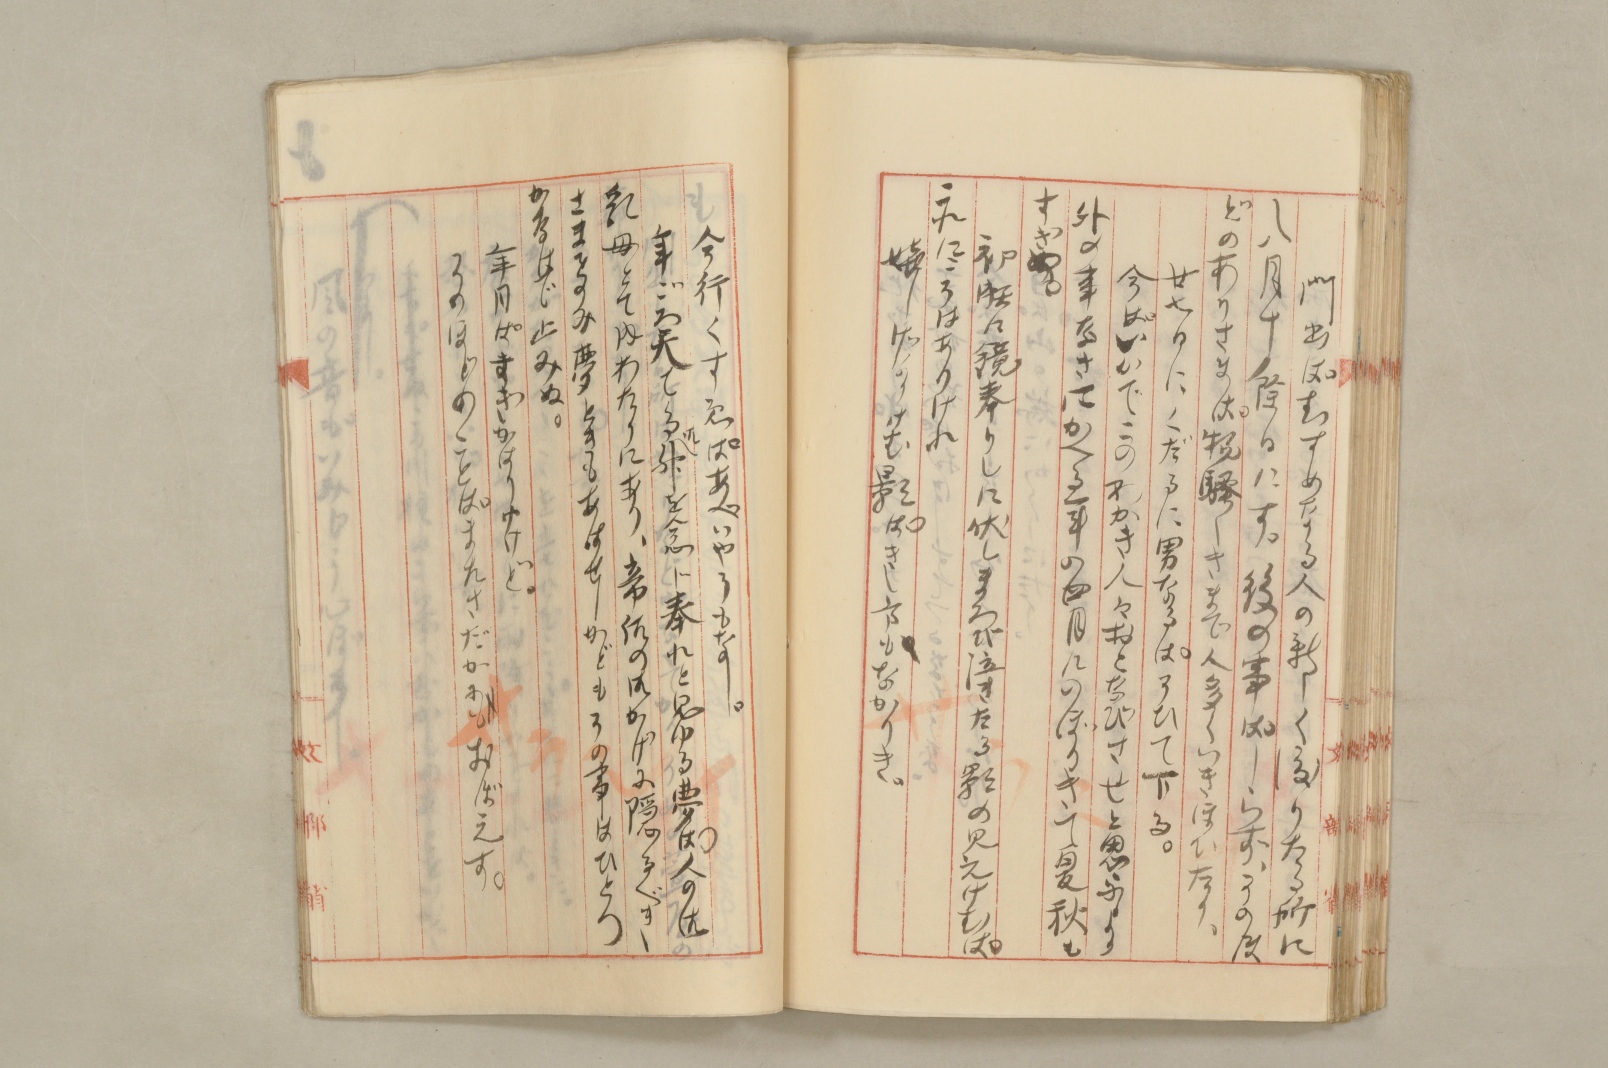 門出はむすめなる人の新しく渡りたる所に
八月十餘日にす。後の事はしらず、その度
どのありさまは物騒しきまで人多くいきほひたり、
廿七日にくだるに男なるはそひて下る。
今はいかでこのわかき人々おとなびさせむと思ふより
外の事なきにかへる年の四月にのぼりきて夏秋も
すぎぬ
初瀬に鏡奉りしに伏しまろび泣きたる影の見えけむは
これにこそはありけれ
嬉しげなりけむ影はきし方もなかりき。
今行くすゑはあべいやうもなし。
年ごろ天てる御神を念じ奉れと見ゆる夢は人の御
乳母して内わたりにあり、帝后の御かげに隱るべき
さまをのみ夢ときもあはせしかどもその事はひとつ
かなはで止みぬ。
年月はすぎかはりゆけど。
そのほどのことはまたさだかにおぼえず。
文部省